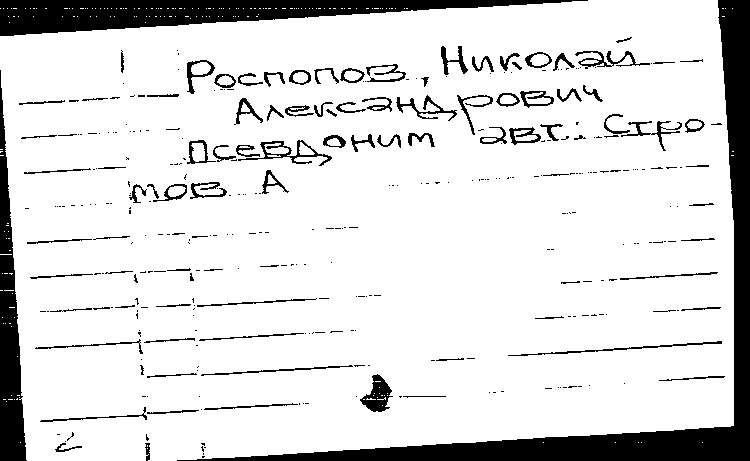 Роспопов, Николай
Александрович
псевдоним авт.: Стро-
мов А
2